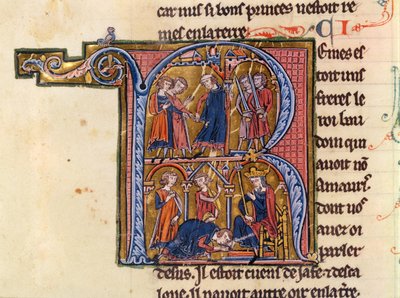 car nus si bons princes nestoit re
mes en la terre.
Remes es
toit uns
freres le
roi bau
doin qui
auoit nō
dont uos
auez oi
parler
desus. Il estoit cuens de iafe et desca
lone. Il nauoit autre oir en la terre.